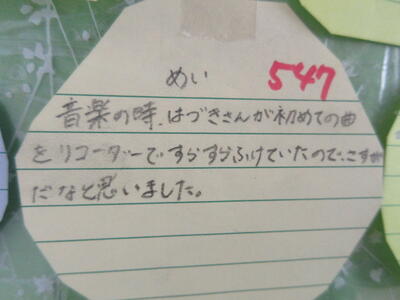 めい 547
音楽の時、はづきさんが初めての曲
をリコーダーですらすらふけていたので、さすが
だなと思いました。